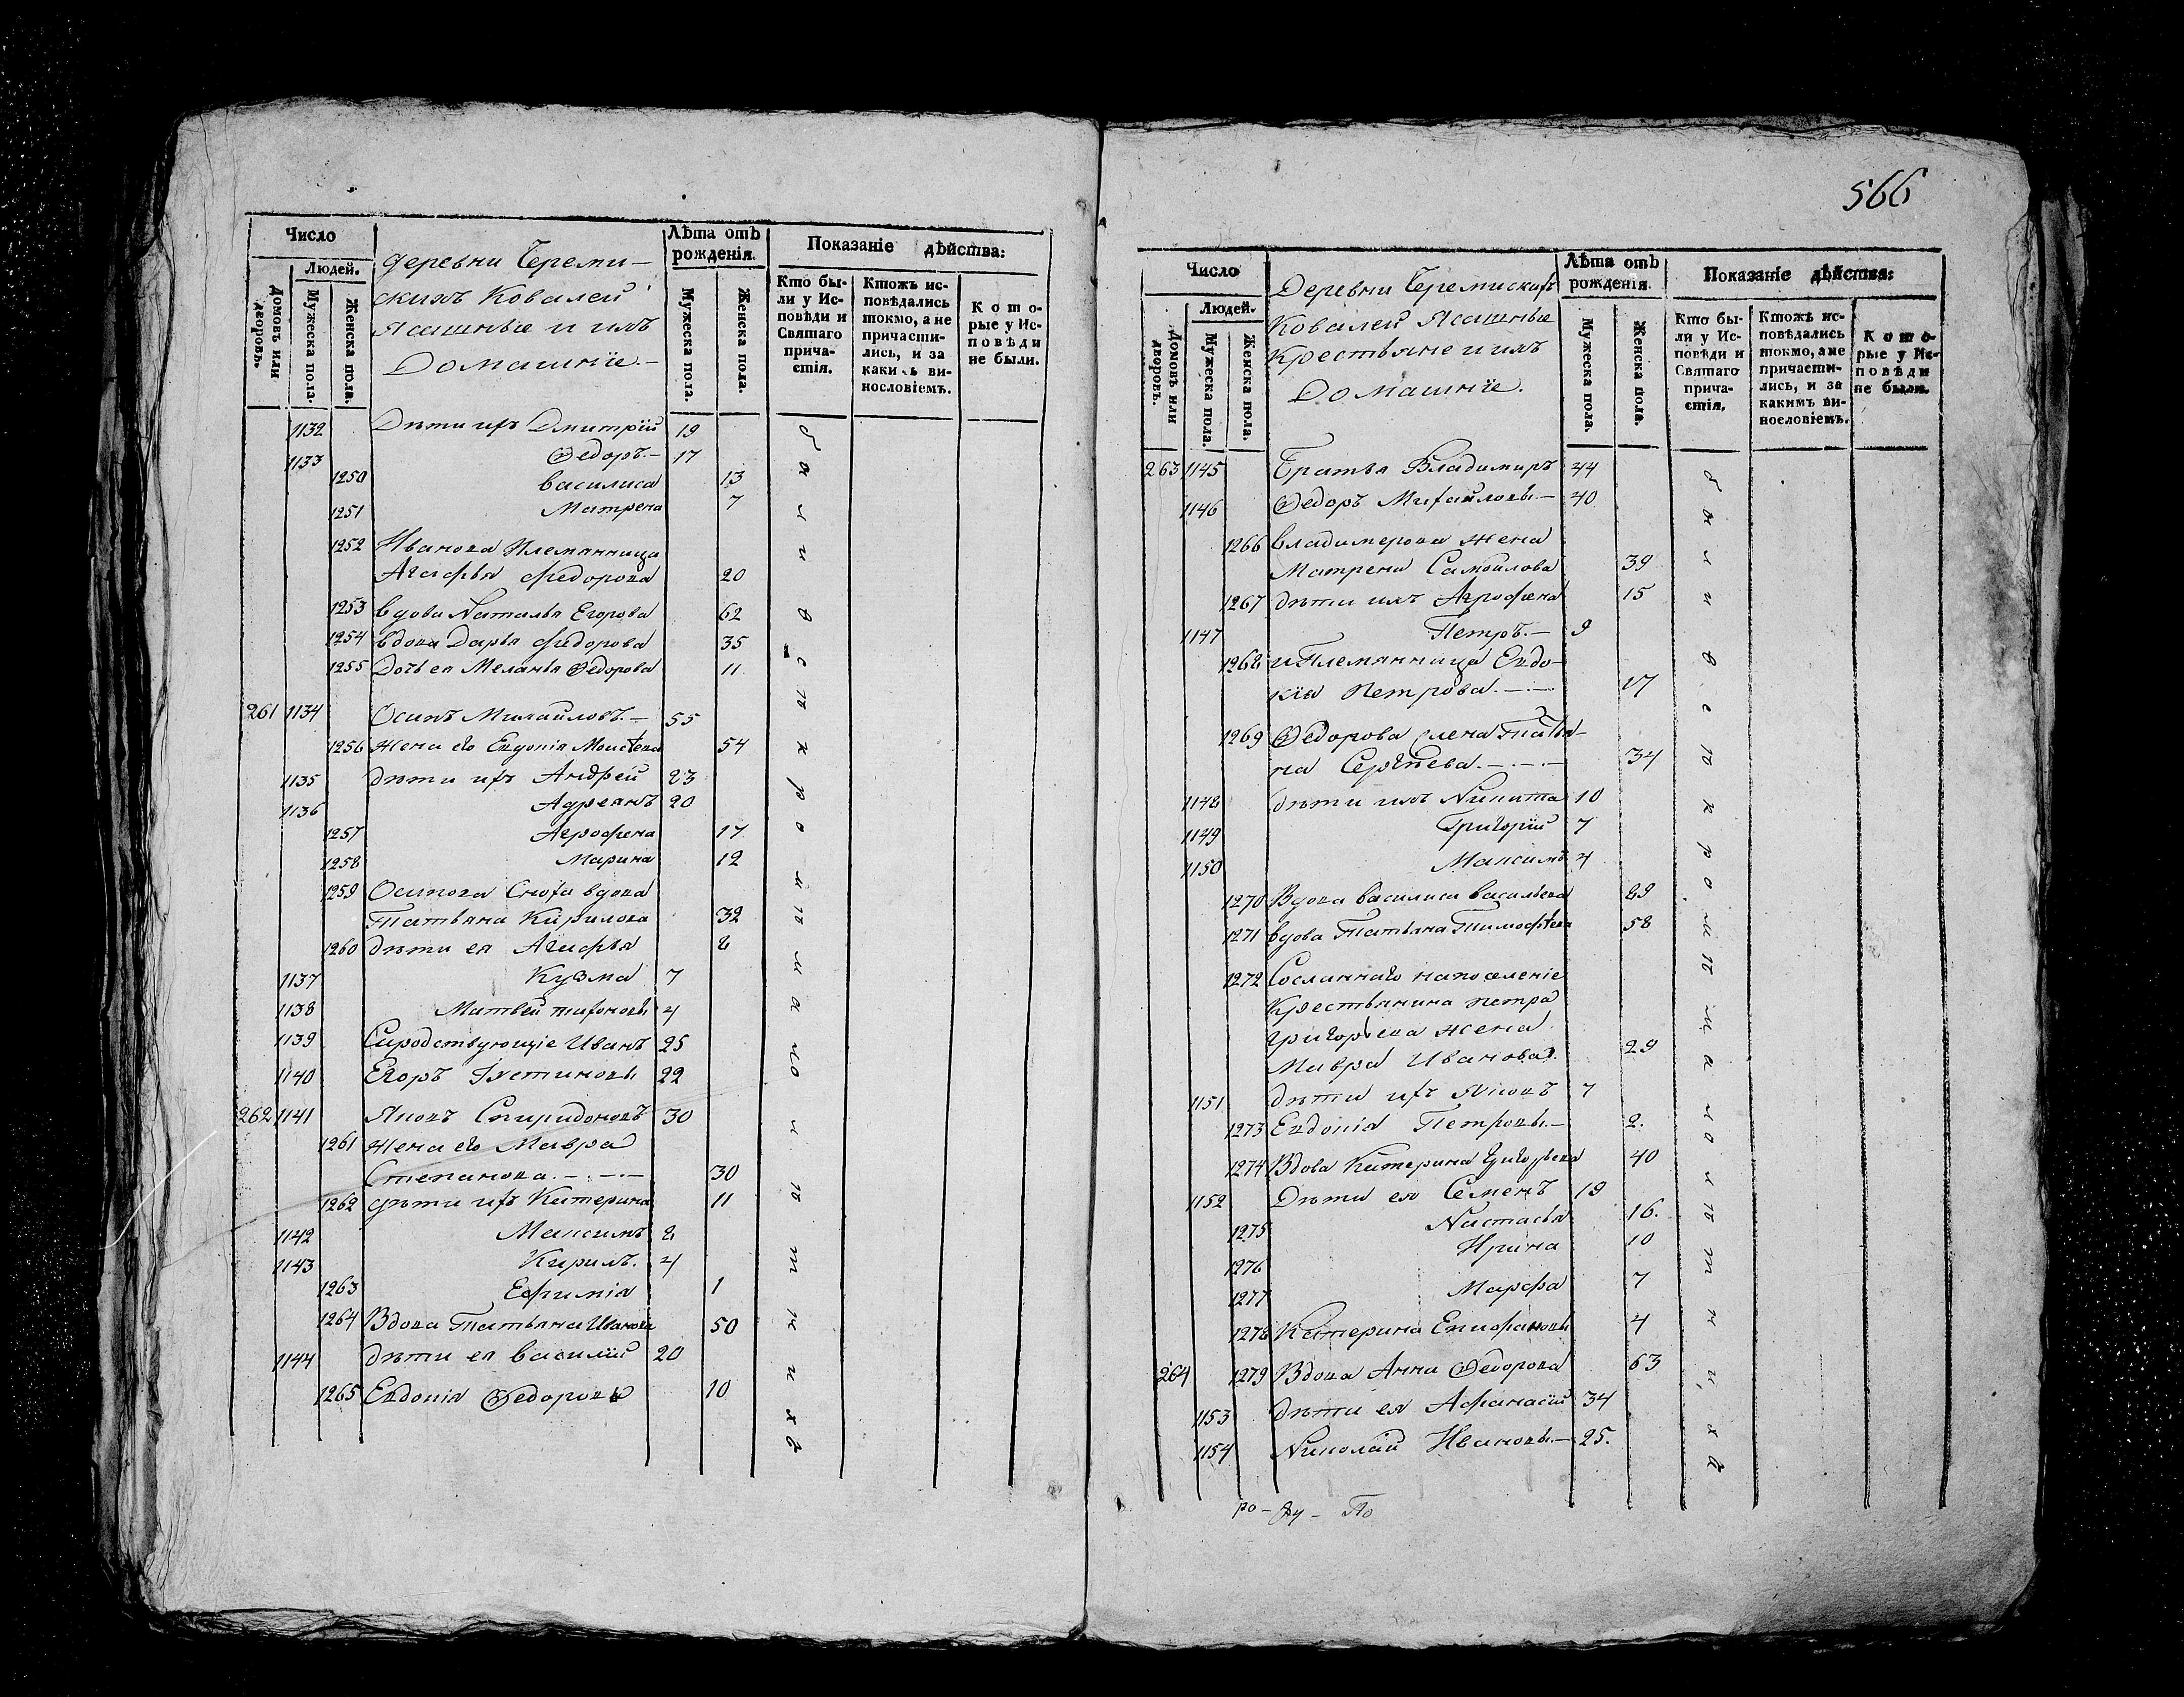 566
Число
Людей.
Домовъ или дворовъ.
Мужеска пола.
Женска пола.
деревни Череми-
скихъ Ковалей
Ясашные и ихъ
Домашнїе.-
Лѣта отъ рожденія.
Мужеска пола.
Женска пола.
Показаніе дѣйства:
Кто бы-
ли у Ис-
повѣди и
Святаго
прича-
стія.
Ктожъ ис-
повѣдались
токмо, а не
причасти-
лись, и за
какимъ ви-
нословіемъ.
К о т о-
рые у Ис-
п о в ѣ д и
не были.
1132 Дѣти ихъ Дмитрїй 19
1133 Ѳедоръ.- 17
1250 Василиса 13
1251 Матрена 7
1252 Иванова Племянница
Агафья Федорова 20
1253 Вдова Наталья Егорова 62
1254 Вдова Дарья Федорова 35
1255 Дочь ея Меланья Ѳедорова 11
261 1134 Осипъ Михайловъ.- 55
1256 Жена его Евдокія Моисѣева 54
1135 дѣти ихъ Андрей 23
1136 Адреянъ 20
1257 Агрофена 17
1258 Марина 12
1259 Осипова Сноха вдова
Татьяна Кирилова 32
1260 дѣти ея Агафья 8
1137 Кузма 7
1138 Матвей тихоновы 4
1139 Сиродствующіе Иванъ 25
1140 Егоръ Устиновы 22
262 1141 Яковъ Спиридоновъ 30
1261 Жена его Мавра
Степанова.- 30
1262 дѣти ихъ Катерина 11
1142 Максимъ 8
1143 Кирилъ. 4
1263 Ефимія 1
1264 Вдова Татьяна Иванова 50
1144 дѣти ея Василий 20
1265 Евдокія Ѳедоровы 10
Число
Людей.
Домовъ или дворовъ.
Мужеска пола.
Женска пола.
Деревни Черемискихъ
Ковалей Ясашные
Крестьяне и ихъ
Домашнїе.
Лѣта отъ рожденія.
Мужеска пола.
Женска пола.
Показаніе дѣйства:
Кто бы-
ли у Ис-
повѣди и
Святаго
прича-
стія.
Ктожъ ис-
повѣдались
токмо, а не
причасти-
лись, и за
какимъ ви-
нословіемъ.
К о т о-
рые у Ис-
п о в ѣ д и
не были.
263 1145 Братья Владимиръ 44
1146 Ѳедоръ Михайловы.- 40
1266 Владимерова жена
Матрена Самойлова 39
1267 дѣти ихъ Агрофена 15
1147 Петръ.- 9
1268 и Племянница Евдо-
кїя Петрова.- 17
1269 Ѳедорова жена Татья-
на Сергѣева.- 34
1148 дѣти ихъ Никита 10
1149 Григорїй 7
1150 Максимъ 4
1270 Вдова Василиса Васильева 29
1271 Вдова Татьяна Тимофѣева 58
1272 Сосланнаго на поселеніе
Крестьянина Петра
Григорьева жена
Мавра Иванова. 29
1151 дѣти ихъ Яковъ 7
1273 Евдокія Петровы.- 2.
1274 Вдова Катерина Григорьева 40
1152 Дѣти ея Семенъ 19
1275 Настасья 16.
1276 Ирина 10
1277 Марфа 7
1278 Катерина Епифановы 4
264 1279 Вдова Анна Ѳедорова 63
1153 дѣти ея Афанасїй 34
1154 Николай Ивановы.- 25.